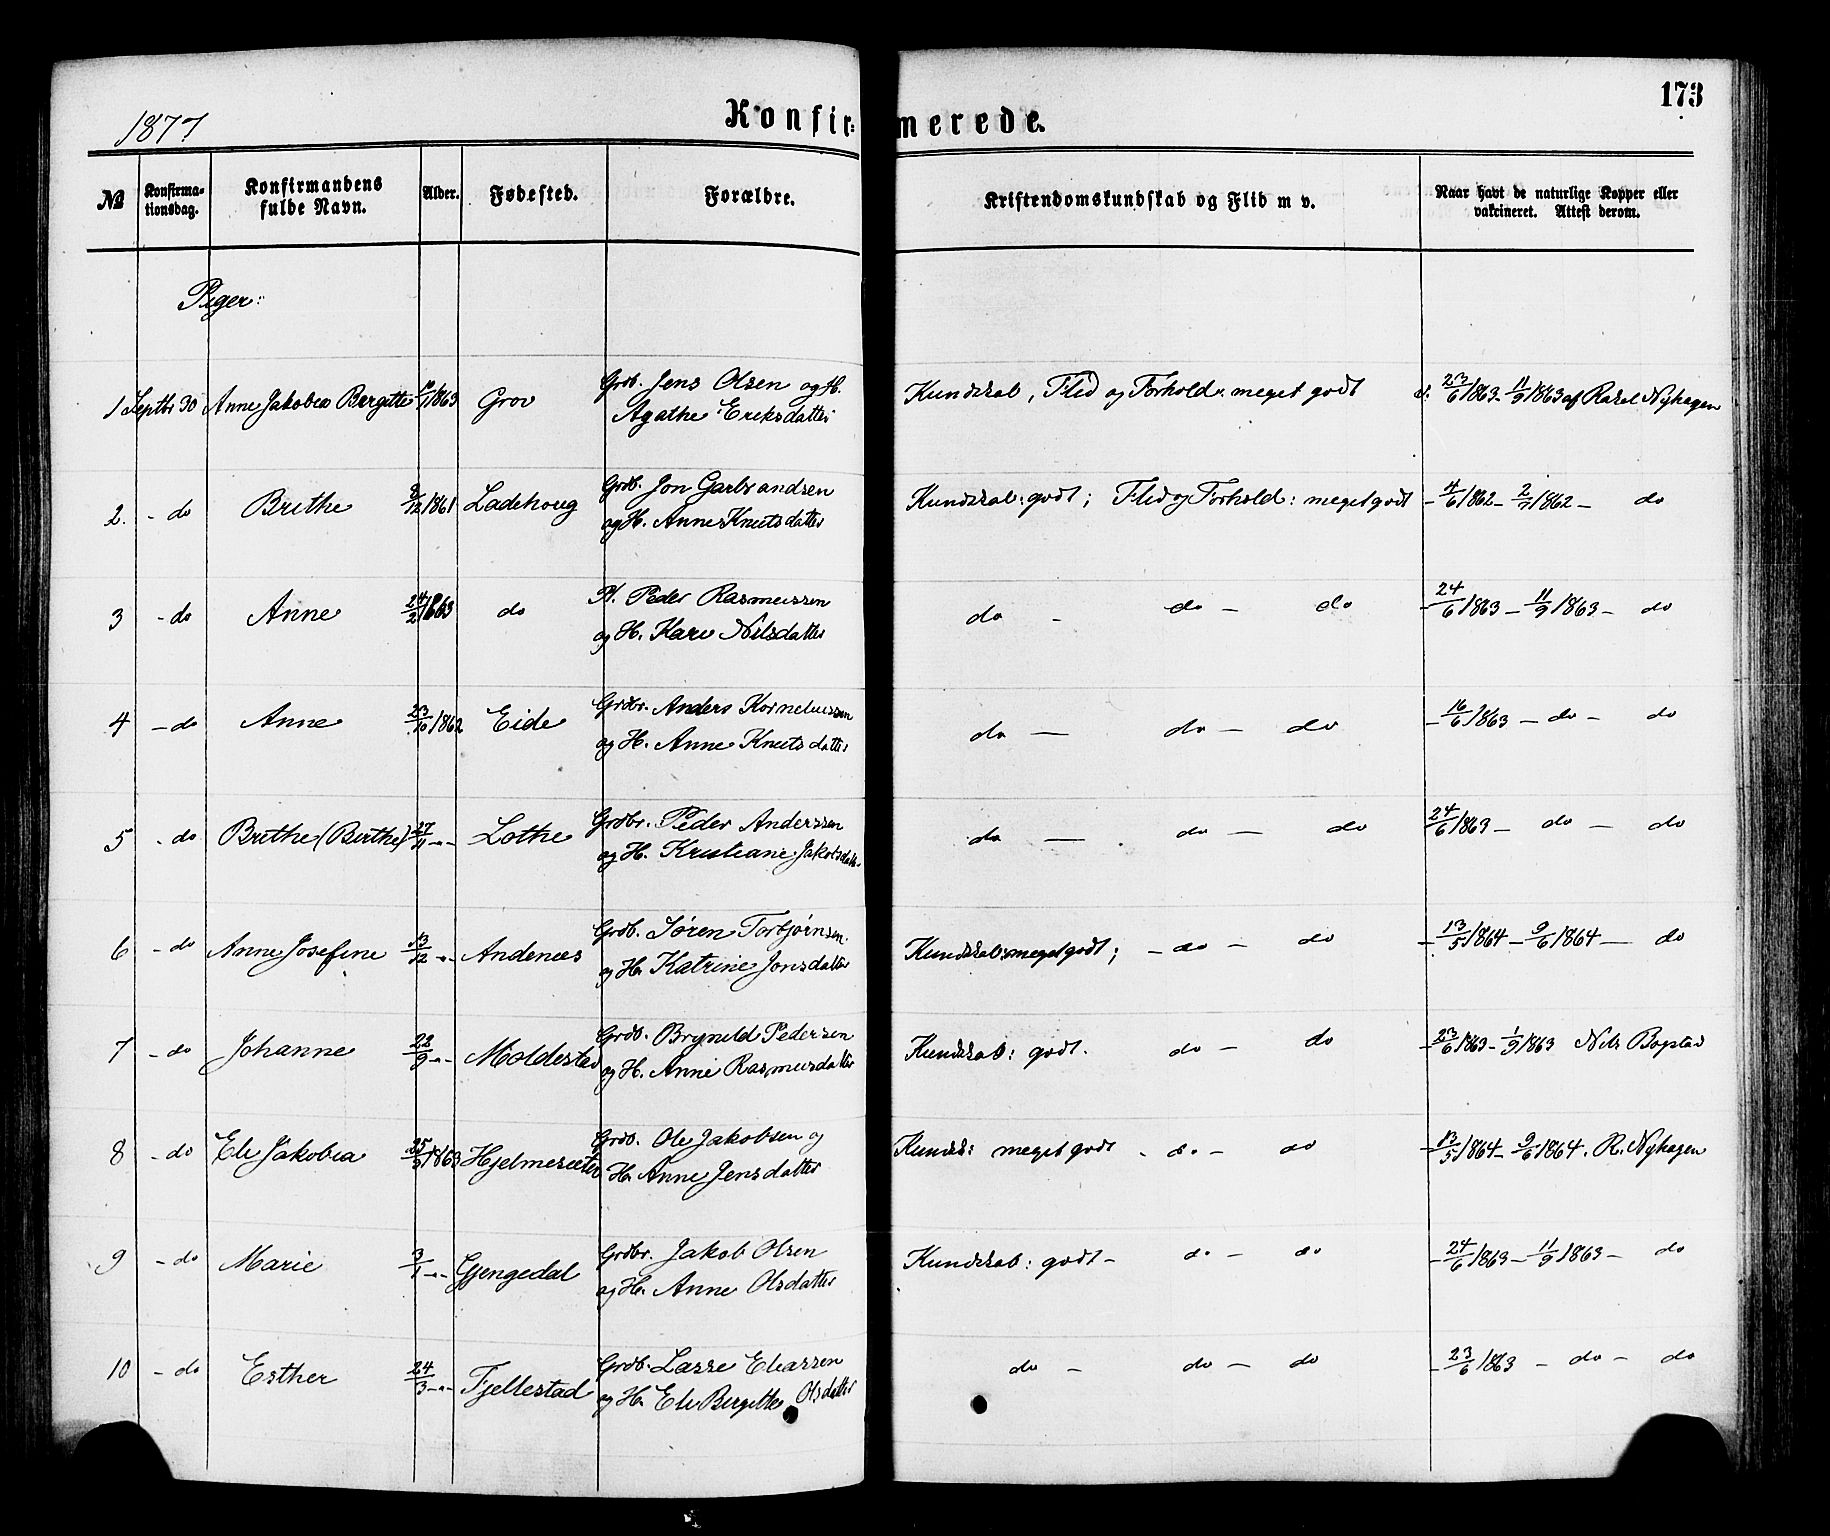 1877 Konfirmerede. 173
№ Konfirmationsdag. Konfirmandens fulde Navn. Alder. Fødested. Forældre. Kristendomskundskab og Flid m v. Naar havt de naturlige Kopper eller vakcineret. Attest derom.
Piger:
Grdb. Jens Olsen og H.
1 Septbr 30 Anne Jakobea Bergitte /1863 Grov Agathe Eriksdatter Kundskab, Flid og Forhold: meget godt d. 23/6 1863 - 11/9 1863 af Rasel Nyhagen
Grdb. Jon Garbrandsen
2. - do Brithe 8/12 1861 Ladehoug og H. Anne Knutsdatter Kundskab: godt; Flid og Forhold: meget godt - 4/6 1862 - 2/7 1862 - do
Pl. Peder Rasmussen
3 - do Anne 24/2 1863 do og H. Kari Nilsdatter do - do - do - 24/6 1863 - 11/9 1863 - do
Grdbr. Anders Korneliussen
4 - do Anne 23/10 1862 Eide og H. Anne Knutsdatter do - do - do - 16/6 1863 - do - do
Grdbr. Peder Anderssen
5 - do Brithe (Birthe) 27/11 -"- Lothe og H. Kristiane Jakobsdatter do - do - do 24/6 1863 - do - do
Grdb. Søren Torbjørnsen
6 - do Anne Josefine 13/12 -"- Andenæs og H. Katrine Jonsdatter Kundskab: meget godt; - do - do - 13/5 1864 - 9/6 1864 - do
Grdb. Brynild Pedersen
7 - do Johanne 22/9 -"- Moldestad og H. Anne Rasmusdatter Kundskab: godt. do - do - 23/6 1863 - 1/9 1863 Nils Bopstad
Grdb. Ole Jakobsen og
8 - do Eli Jakobea 25/5 1863 Hjelmesæter H. Anne Jensdatter Kundsk: meget godt - do - do - 13/5 1864 - 9/6 1864. R. Nyhagen
Grdbr. Jakob Olsen
9 - do Marie 3/1 -"- Gjengedal og H. Anne Olsdatter Kundskab: godt - do - do - 24/6 1863 - 11/9 1863 - do
Grdb. Lasse Eliassen
10 - do Esther 24/3 -"- Fjellestad og H. Eli Bergitte Olsdatter do - do - do - 23/6 1863 - do - do